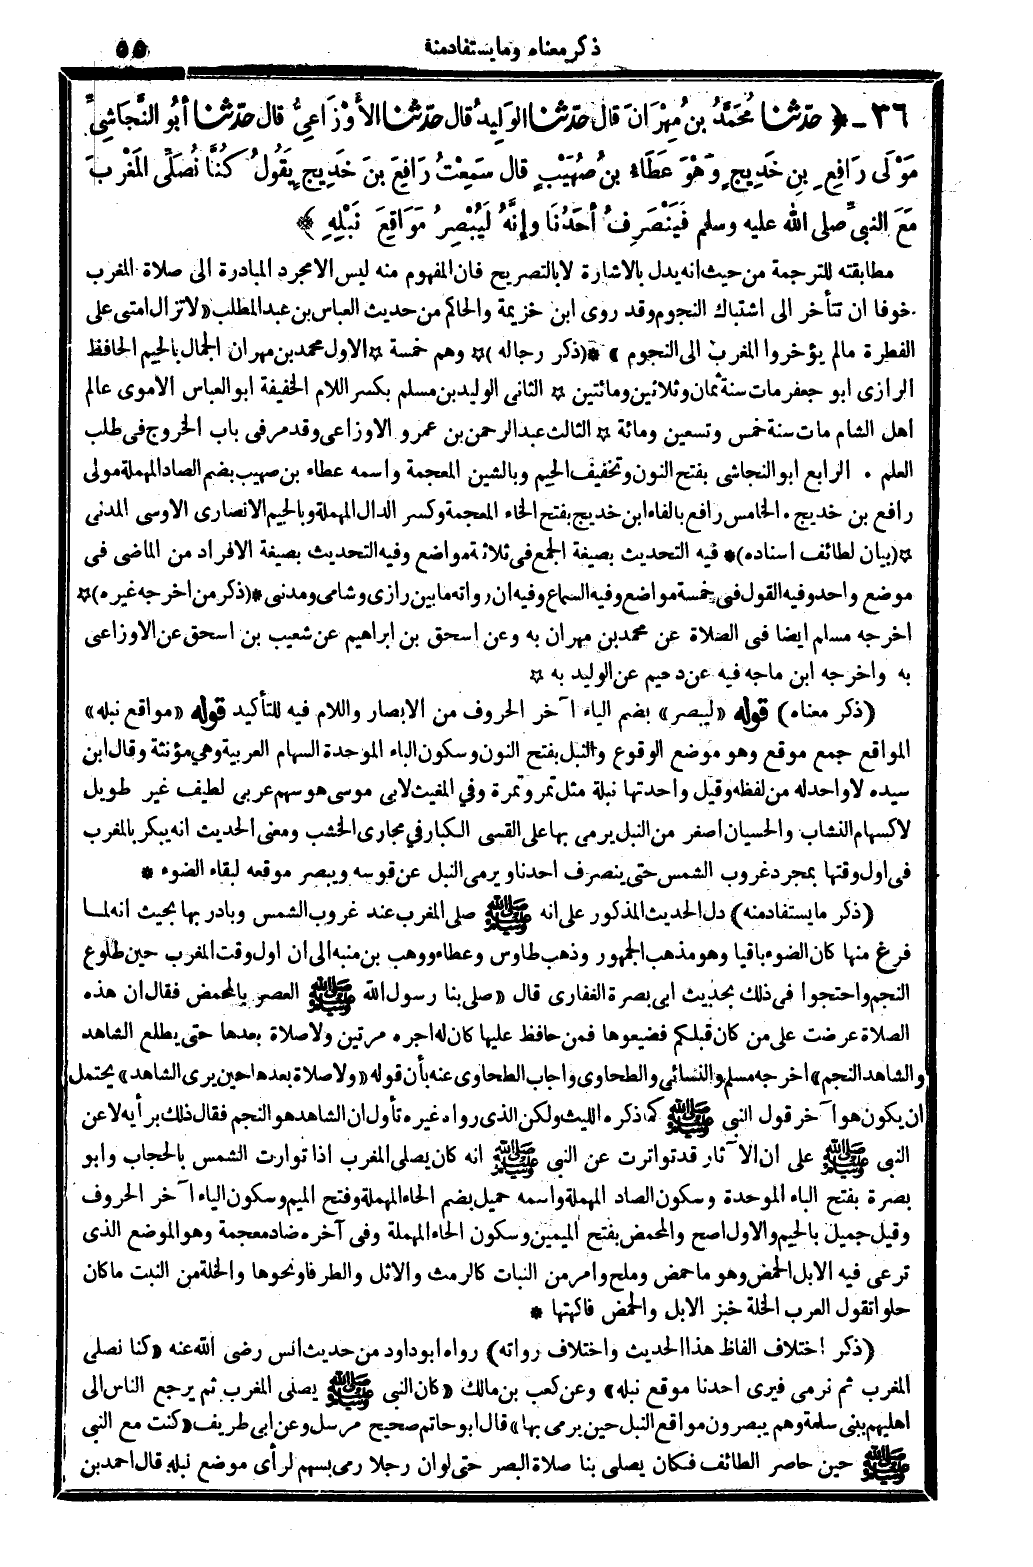 ذكر معناه وما يستفاد منه ٥٥
٣٦ـ ﴿ حدثنا مُحَمَّدُ بنُ مِهْرَانَ قال حدثنا الوَلِيدُ قال حدثنا الأَوْزَاعِيُّ قال حدثنا أبُو النَّجَاشِيِّ
مَوْلَى رَافِعِ بنِ خَدِيجٍ وَهْوَ عَطَاءُ بنُ صُهَيْبٍ قال سَمِعْتُ رَافِعَ بنَ خَدِيجٍ يَقُولُ كُنَّا نُصَلِّي المَغْرِبَ
مَعَ النبيِّ صلى الله عليه وسلم فَيَنْصَرِفُ أحَدُنَا وإنَّهُ لَيُبْصِرُ مَوَاقِعَ نَبْلِهِ ﴾
مطابقته للترجمة من حيث انه يدل بالاشارة لا بالتصريح فان المفهوم منه ليس الا مجرد المبادرة الى صلاة المغرب
خوفا ان تتأخر الى اشتباك النجوم وقد روى ابن خزيمة والحاكم من حديث العباس بن عبد المطلب «لا تزال امتى على
الفطرة مالم يؤخروا المغرب الى النجوم» * (ذكر رجاله) ☆ وهم خمسة ☆ الاول محمد بن مهران الجمال بالجيم الحافظ
الرازى ابو جعفر مات سنة ثمان وثلاثين ومائتين ☆ الثانى الوليد بن مسلم بكسر اللام الخفيفة ابو العباس الاموى عالم
اهل الشام مات سنة خمس وتسعين ومائة ☆ الثالث عبد الرحمن بن عمرو الاوزاعى وقد مر فى باب الخروج فى طلب
العلم . الرابع ابو النجاشى بفتح النون وتخفيف الجيم وبالشين المعجمة واسمه عطاء بن صهيب بضم الصاد المهملة مولى
رافع بن خديج . الخامس رافع بالفاء ابن خديج بفتح الخاء المعجمة وكسر الدال المهملة وبالجيم الانصارى الاوسى المدنى
☆ (بيان لطائف اسناده) * فيه التحديث بصيغة الجمع فى ثلاثة مواضع وفيه التحديث بصيغة الافراد من الماضى فى
موضع واحد وفيه القول فى خمسة مواضع وفيه السماع وفيه ان رواته ما بين رازى وشامى ومدنى * (ذكر من اخرجه غيره) ☆
اخرجه مسلم ايضا فى الصلاة عن محمد بن مهران به وعن اسحق بن ابراهيم عن شعيب بن اسحق عن الاوزاعى
به واخرجه ابن ماجه فيه عن دحيم عن الوليد به ☆
(ذكر معناه) قوله «ليبصر» بضم الياء آخر الحروف من الابصار واللام فيه للتأكيد قوله «مواقع نبله»
المواقع جمع موقع وهو موضع الوقوع والنبل بفتح النون وسكون الباء الموحدة السهام العربية وهي مؤنثة وقال ابن
سيده لا واحد له من لفظه وقيل واحدتها نبلة مثل تمر وتمرة وفي المغيث لابى موسى هو سهم عربى لطيف غير طويل
لا كسهام النشاب والحسبان اصغر من النبل يرمى بها على القسى الكبار في مجارى الخشب ومعنى الحديث انه يبكر بالمغرب
فى اول وقتها بمجرد غروب الشمس حتى ينصرف احدنا ويرمى النبل عن قوسه ويبصر موقعه لبقاء الضوء *
(ذكر ما يستفاد منه) دل الحديث المذكور على انه ﷺ صلى المغرب عند غروب الشمس وبادر بها بحيث انه لما
فرغ منها كان الضوء باقيا وهو مذهب الجمهور وذهب طاوس وعطاء ووهب بن منبه الى ان اول وقت المغرب حين طلوع
النجم واحتجوا فى ذلك بحديث ابى بصرة الغفارى قال «صلى بنا رسول الله ﷺ العصر بالمحمض فقال ان هذه
الصلاة عرضت على من كان قبلكم فضيعوها فمن حافظ عليها كان له اجره مرتين ولا صلاة بعدها حتى يطلع الشاهد
والشاهد النجم» اخرجه مسلم والنسائى والطحاوى واجاب الطحاوى عنه بأن قوله «ولا صلاة بعدها حين يرى الشاهد» يحتمل
ان يكون هو آخر قول النبى ﷺ كما ذكره الليث ولكن الذى رواه غيره تأول ان الشاهد هو النجم فقال ذلك برأيه لا عن
النبى ﷺ على ان الآثار قد تواترت عن النبى ﷺ انه كان يصلى المغرب اذا توارت الشمس بالحجاب وابو
بصرة بفتح الباء الموحدة وسكون الصاد المهملة واسمه حميل بضم الحاء المهملة وفتح الميم وسكون الياء آخر الحروف
وقيل جميل بالجيم والاول اصح والمحمض بفتح الميمين وسكون الحاء المهملة وفى آخره ضاد معجمة وهو الموضع الذى
ترعى فيه الابل الحمض وهو ما حمض وملح وامر من النبات كالرمث والاثل والطرفا ونحوها والخلة من النبت ما كان
حلوا تقول العرب الخلة خبز الابل والحمض فاكهتها *
(ذكر اختلاف الفاظ هذا الحديث واختلاف رواته) رواه ابو داود من حديث انس رضى الله عنه «كنا نصلى
المغرب ثم نرمى فيرى احدنا موقع نبله» وعن كعب بن مالك «كان النبى ﷺ يصلى المغرب ثم يرجع الناس الى
اهليهم ببنى سلمة وهم يبصرون مواقع النبل حين يرمى بها» قال ابو حاتم صحيح مرسل وعن ابى طريف «كنت مع النبى
ﷺ حين حاصر الطائف فكان يصلى بنا صلاة البصر حتى لو ان رجلا رمى بسهم لرأى موضع نبله قال احمد بن